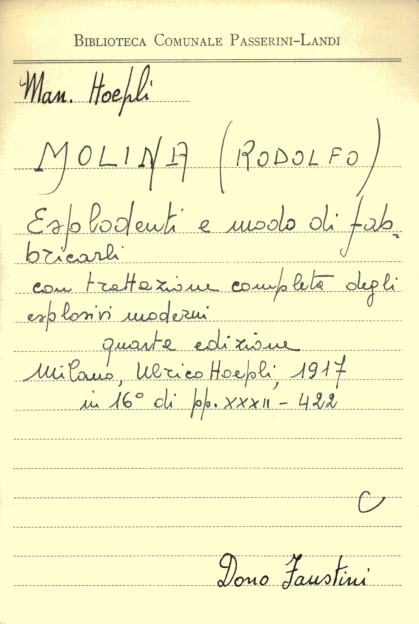 BIBLIOTECA COMUNALE PASSERINI-LANDI
Man. Hoepli
MOLINA (RODOLFO)
Esplodenti e modo di fab-
bricarli
con trattazione completa degli
esplosivi moderni
quarta edizione
Milano, Ulrico Hoepli, 1917
in 16° di pp. XXXII - 422
C
Dono Faustini